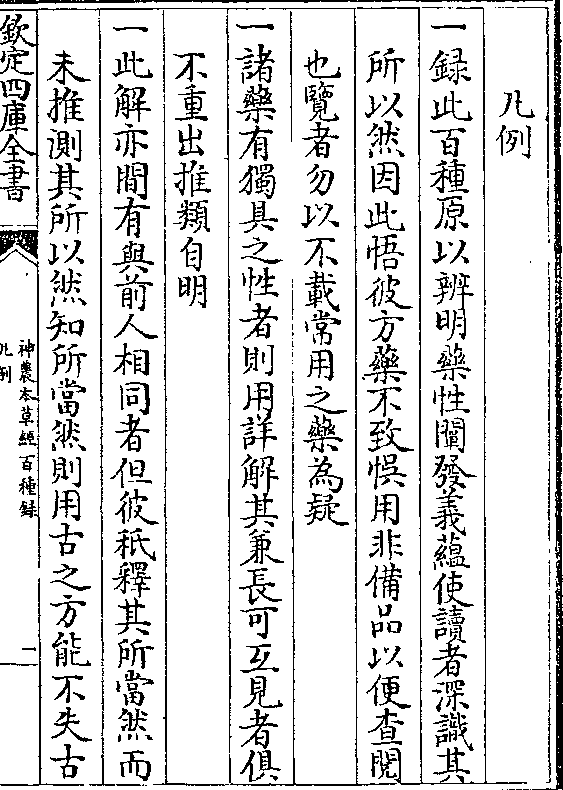 凡例
一録此百種原以辨明藥性闡發義蘊使讀者深識其
所以然因此悟彼方藥不致悞用非備品以便查閱
也覽者勿以不載常用之藥為疑
一諸藥有獨具之性者則用詳解其兼長可互見者俱
不重出推類自明
一此解亦間有與前人相同者但彼秖釋其所當然而
未推測其所以然知所當然則用古之方能不失古
欽定四庫全書
神農本草經百種録
凡例
一